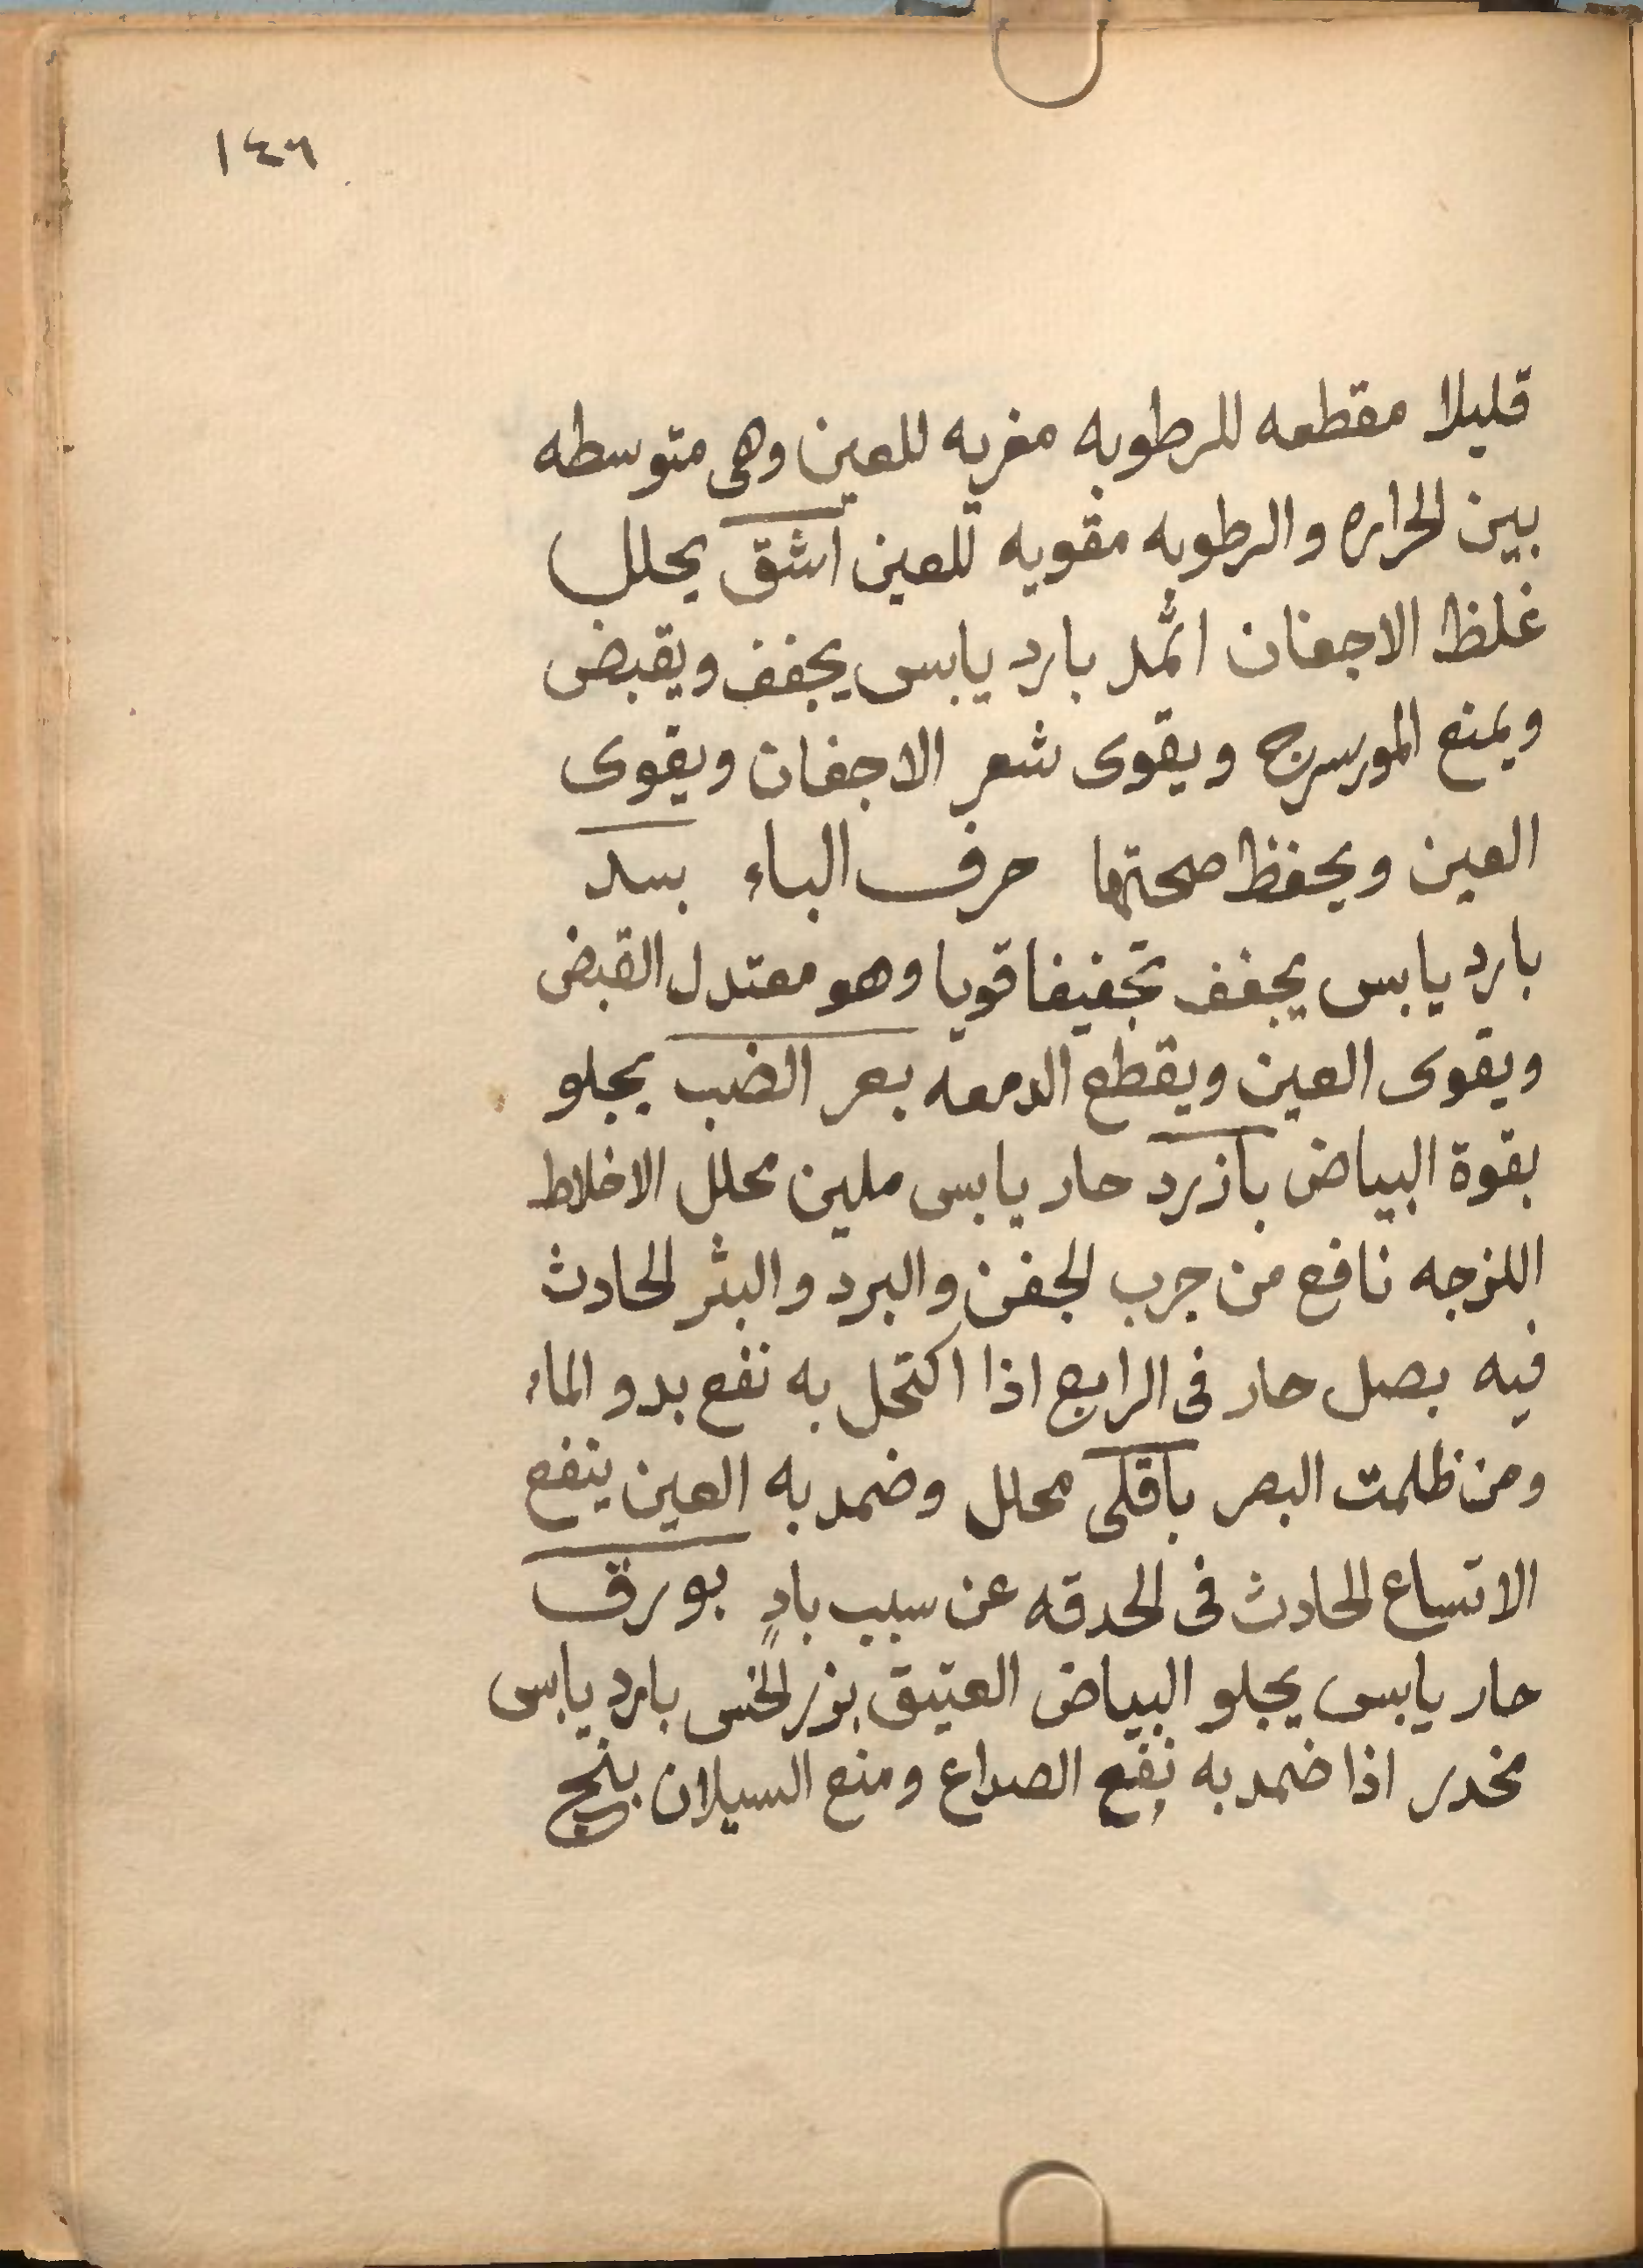 ١٤٦
قليلا مقطعه للرطوبه مغريه للعين وهى متوسطه
بين الحراره والرطوبه مقويه للعين اشق يحلل
غلظ الاجفان اثمد بارد يابس يجفف ويقبض
ويمنع المورسرج ويقوى شعر الاجفان ويقوى
العين ويحفظ صحتها حرف الباء بسد
بارد يابس يجفف تجفيفا قويا وهو معتدل القبض
ويقوى العين ويقطع الدمعه بعر الضب يجلو
بقوة البياض بازرد حار يابس ملين محلل الاخلاط
اللزجه نافع من جرب الجفن والبرد والبثر الحادث
فيه بصل حار فى الرابع اذا اكتحل به نفع بدو الماء
ومن ظلمت البصر باقلى محلل وضمد به العين ينفع
الاتساع الحادث فى الحدقه عن سبب بادٍ بورق
حار يابس يجلو البياض العتيق بزر الخس بارد يابس
مخدر اذا ضمد به نفع الصداع ومنع السيلان بنج